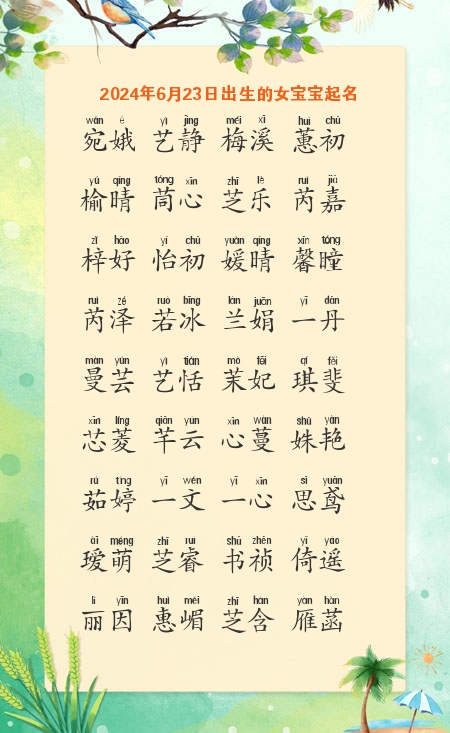 2024年6月23日出生的女宝宝起名
wǎn é yì jìng méi xī huì chū
宛娥 艺静 梅溪 蕙初
yú qíng tóng xīn zhī lè ruì jiā
榆晴 茼心 芝乐 芮嘉
zǐ hǎo yí chū yuàn qíng xīn tóng
梓好 怡初 媛晴 馨瞳
ruì zé ruò bīng lán juān yī dān
芮泽 若冰 兰娟 一丹
màn yún yì tián mò fēi qí fěi
曼芸 艺恬 茉妃 琪斐
xīn líng qiān yún xīn wàn shū yàn
芯菱 芊云 心蔓 姝艳
rú tíng yī wén yī xīn sī yuān
茹婷 一文 一心 思鸢
ài méng zhī ruì shū zhēn yǐ yáo
瑷萌 芝睿 书祯 倚遥
lì yīn huì méi zhī hán yàn hàn
丽因 惠嵋 芝含 雁菡